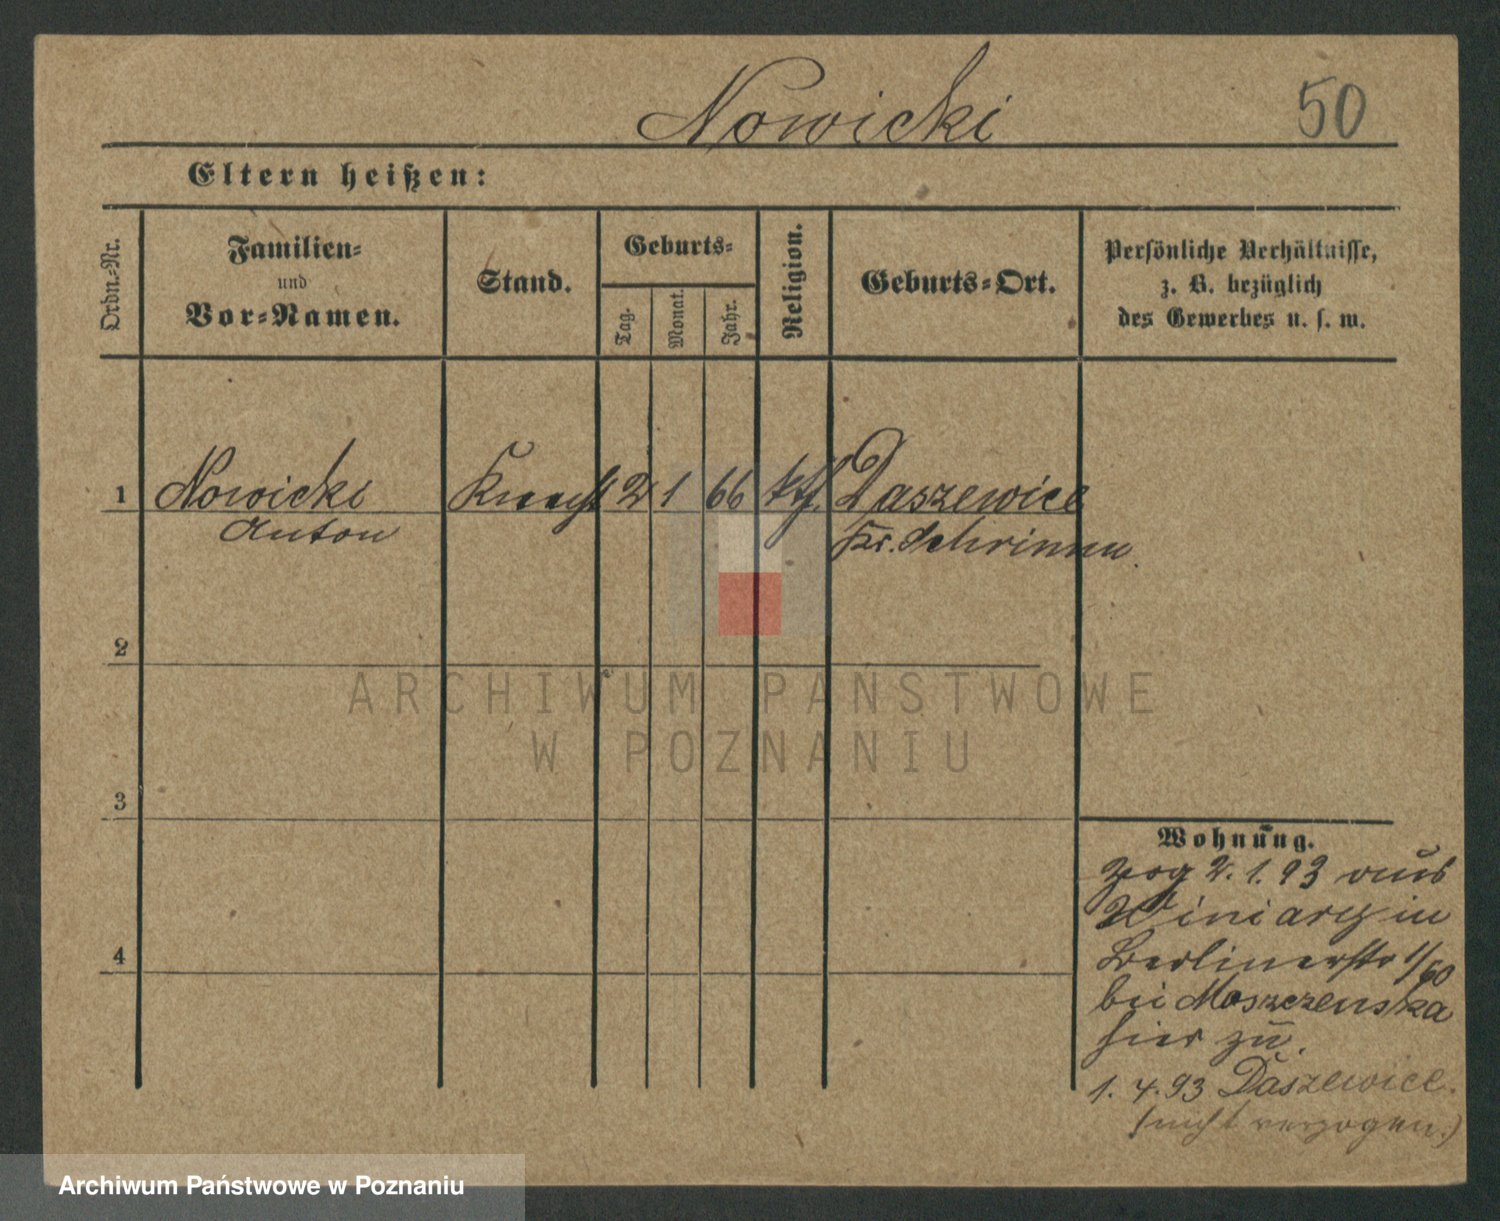 Nowicki 50
Eltern heißen:
Ordn.-Nr.
Familien-
und
Vor-Namen.
Stand.
Geburts-
Tag.
Monat.
Jahr.
Religion.
Geburts-Ort.
Persönliche Verhältnisse,
z. B. bezüglich
des Gewerbes u. s. w.
1 Nowicki Knecht 2 1 66 kth. Daszewice
Anton Kr. Schrimm
2
3
4
Wohnung.
zog 2.1.93 aus
Winiary in
Berlinerstr 1/60
bei Moszczenska
hier zu.
1.4.93 Daszewice.
(nicht verzogen.)
ARCHIWUM PAŃSTWOWE
W POZNANIU
Archiwum Państwowe w Poznaniu